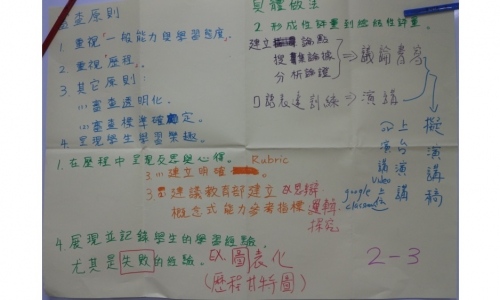 審查原則
1. 重視「一般能力與學習態度」.
2. 重視「歷程」.
3 其它原則:
(1) 審查透明化.
(2) 審查標準確定.
4. 呈現學生學習樂趣.
1. 在歷程中呈現反思與心得.
Rubric
3 (1) 建立明確
3 建議教育部建立 以思辨
概念式能力參考指標 邏輯 探究
4. 展現並記錄學生的學習經驗.
尤其是失敗的經驗.
EX. 圖表化
(歷程 甘特圖)
具體做法
2. 形成性評量到總結性評量.
建立 論點
搜集論據
分析論證
⇒ 議論書寫
口語表達訓練 ⇒ 演講
擬演講稿
上台演講
video
google
classroom
2-3